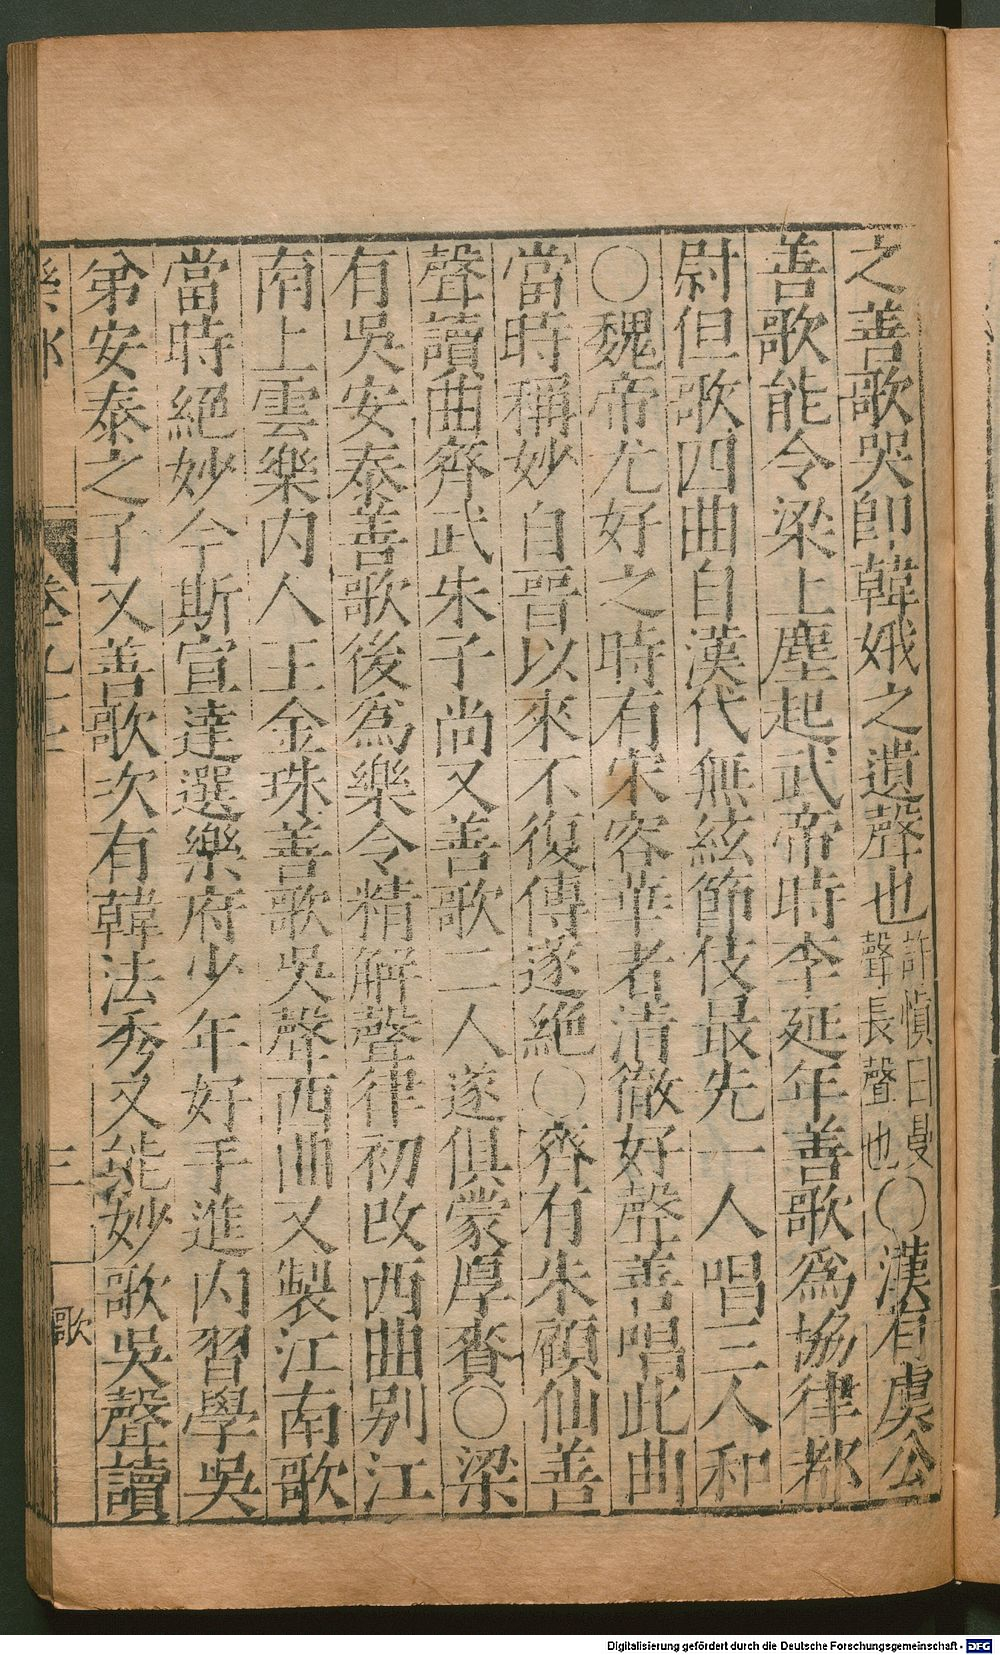 之善歌哭即韓娥之遺聲也許慎曰曼聲長聲也○漢有虞公
善歌能令梁上塵起武帝時李延年善歌為協律都
尉但歌四曲自漢代無絃節伎最先一人唱三人和
○魏帝尤好之時有宋容華者清徹好聲善唱此曲
當時稱妙自晉以來不復傳遂絕○齊有朱顧仙善
聲讀曲齊武朱子尚又善歌二人遂俱蒙厚賚○梁
有吳安泰善歌後為樂令精解聲律初改西曲別江
南上雲樂內人王金珠善歌吳聲西曲又製江南歌
當時絕妙今斯宣達選樂府少年好手進內習學吳
弟安泰之子又善歌次有韓法秀又能妙歌吳聲讀
樂部
三
歌
Digitalisierung gefördert durch die Deutsche Forschungsgemeinschaft - DFG